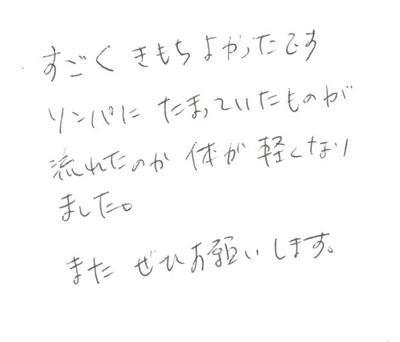 すごく きもちよかったです
リンパに たまっていたものが
流れたのか 体が 軽くなり
ました。
また ぜひお願いします。